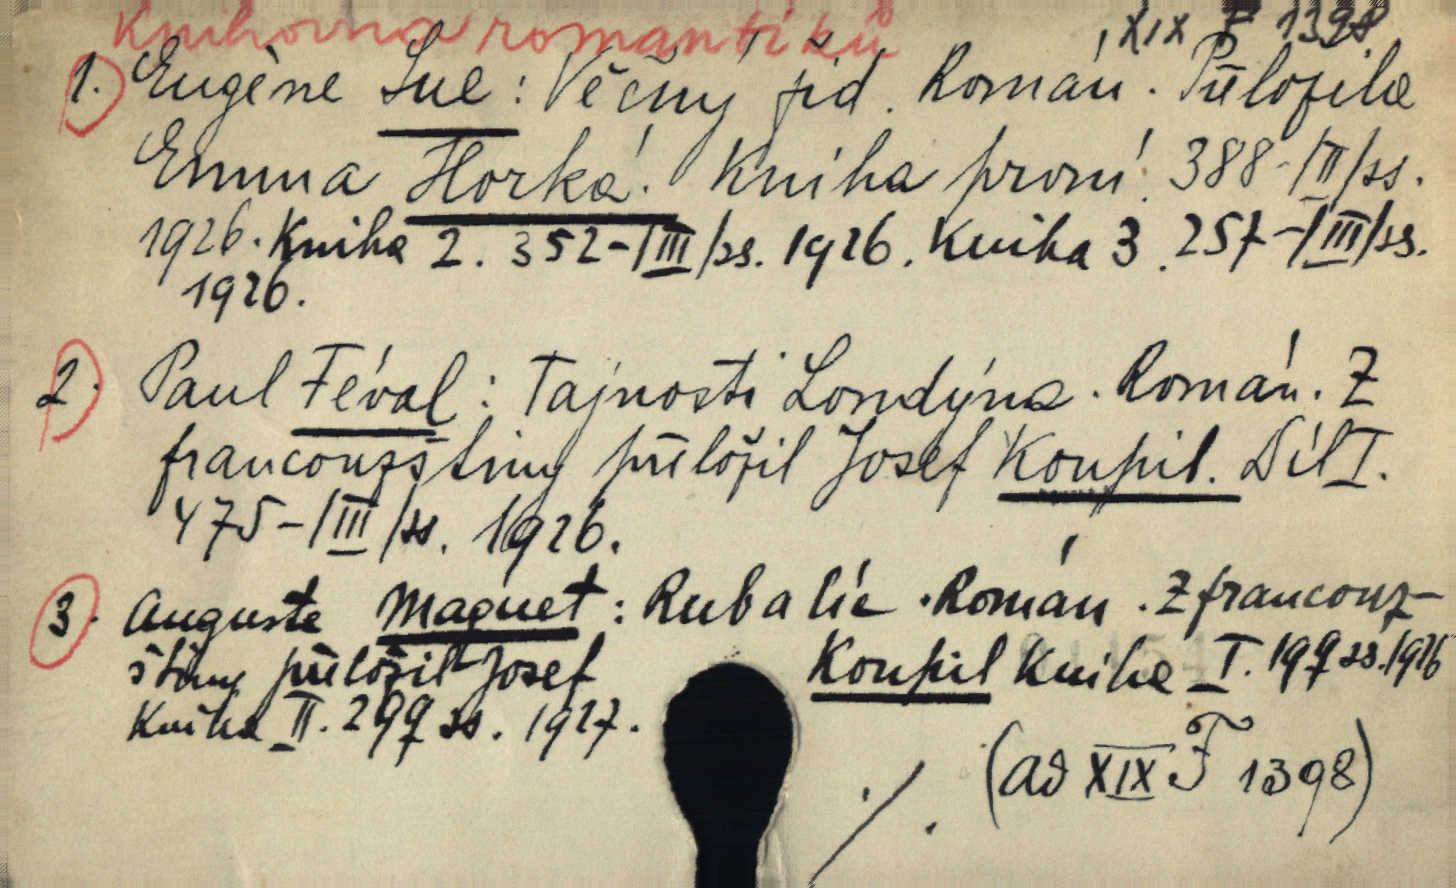 Knihovna romantiků
XIX F 1398.
1. Eugène Sue: Věčný žid. Román. Přeložila
Emma Horká. Kniha první. 388-/II/ ss.
1926. Kniha 2. 352-/III/ ss. 1926. Kniha 3. 257-/III/ ss.
1926.
2. Paul Féval: Tajnosti Londýna. Román. Z
francouzštiny přeložil Josef Koupil. Díl I.
475-/III/ ss. 1926.
3. Auguste Maquet: Rubalíc. Román. Z francouz-
štiny přeložil Josef Koupil Kniha I. 199 ss. 1926
Kniha II. 299 ss. 1927.
(ad XIX F 1398)